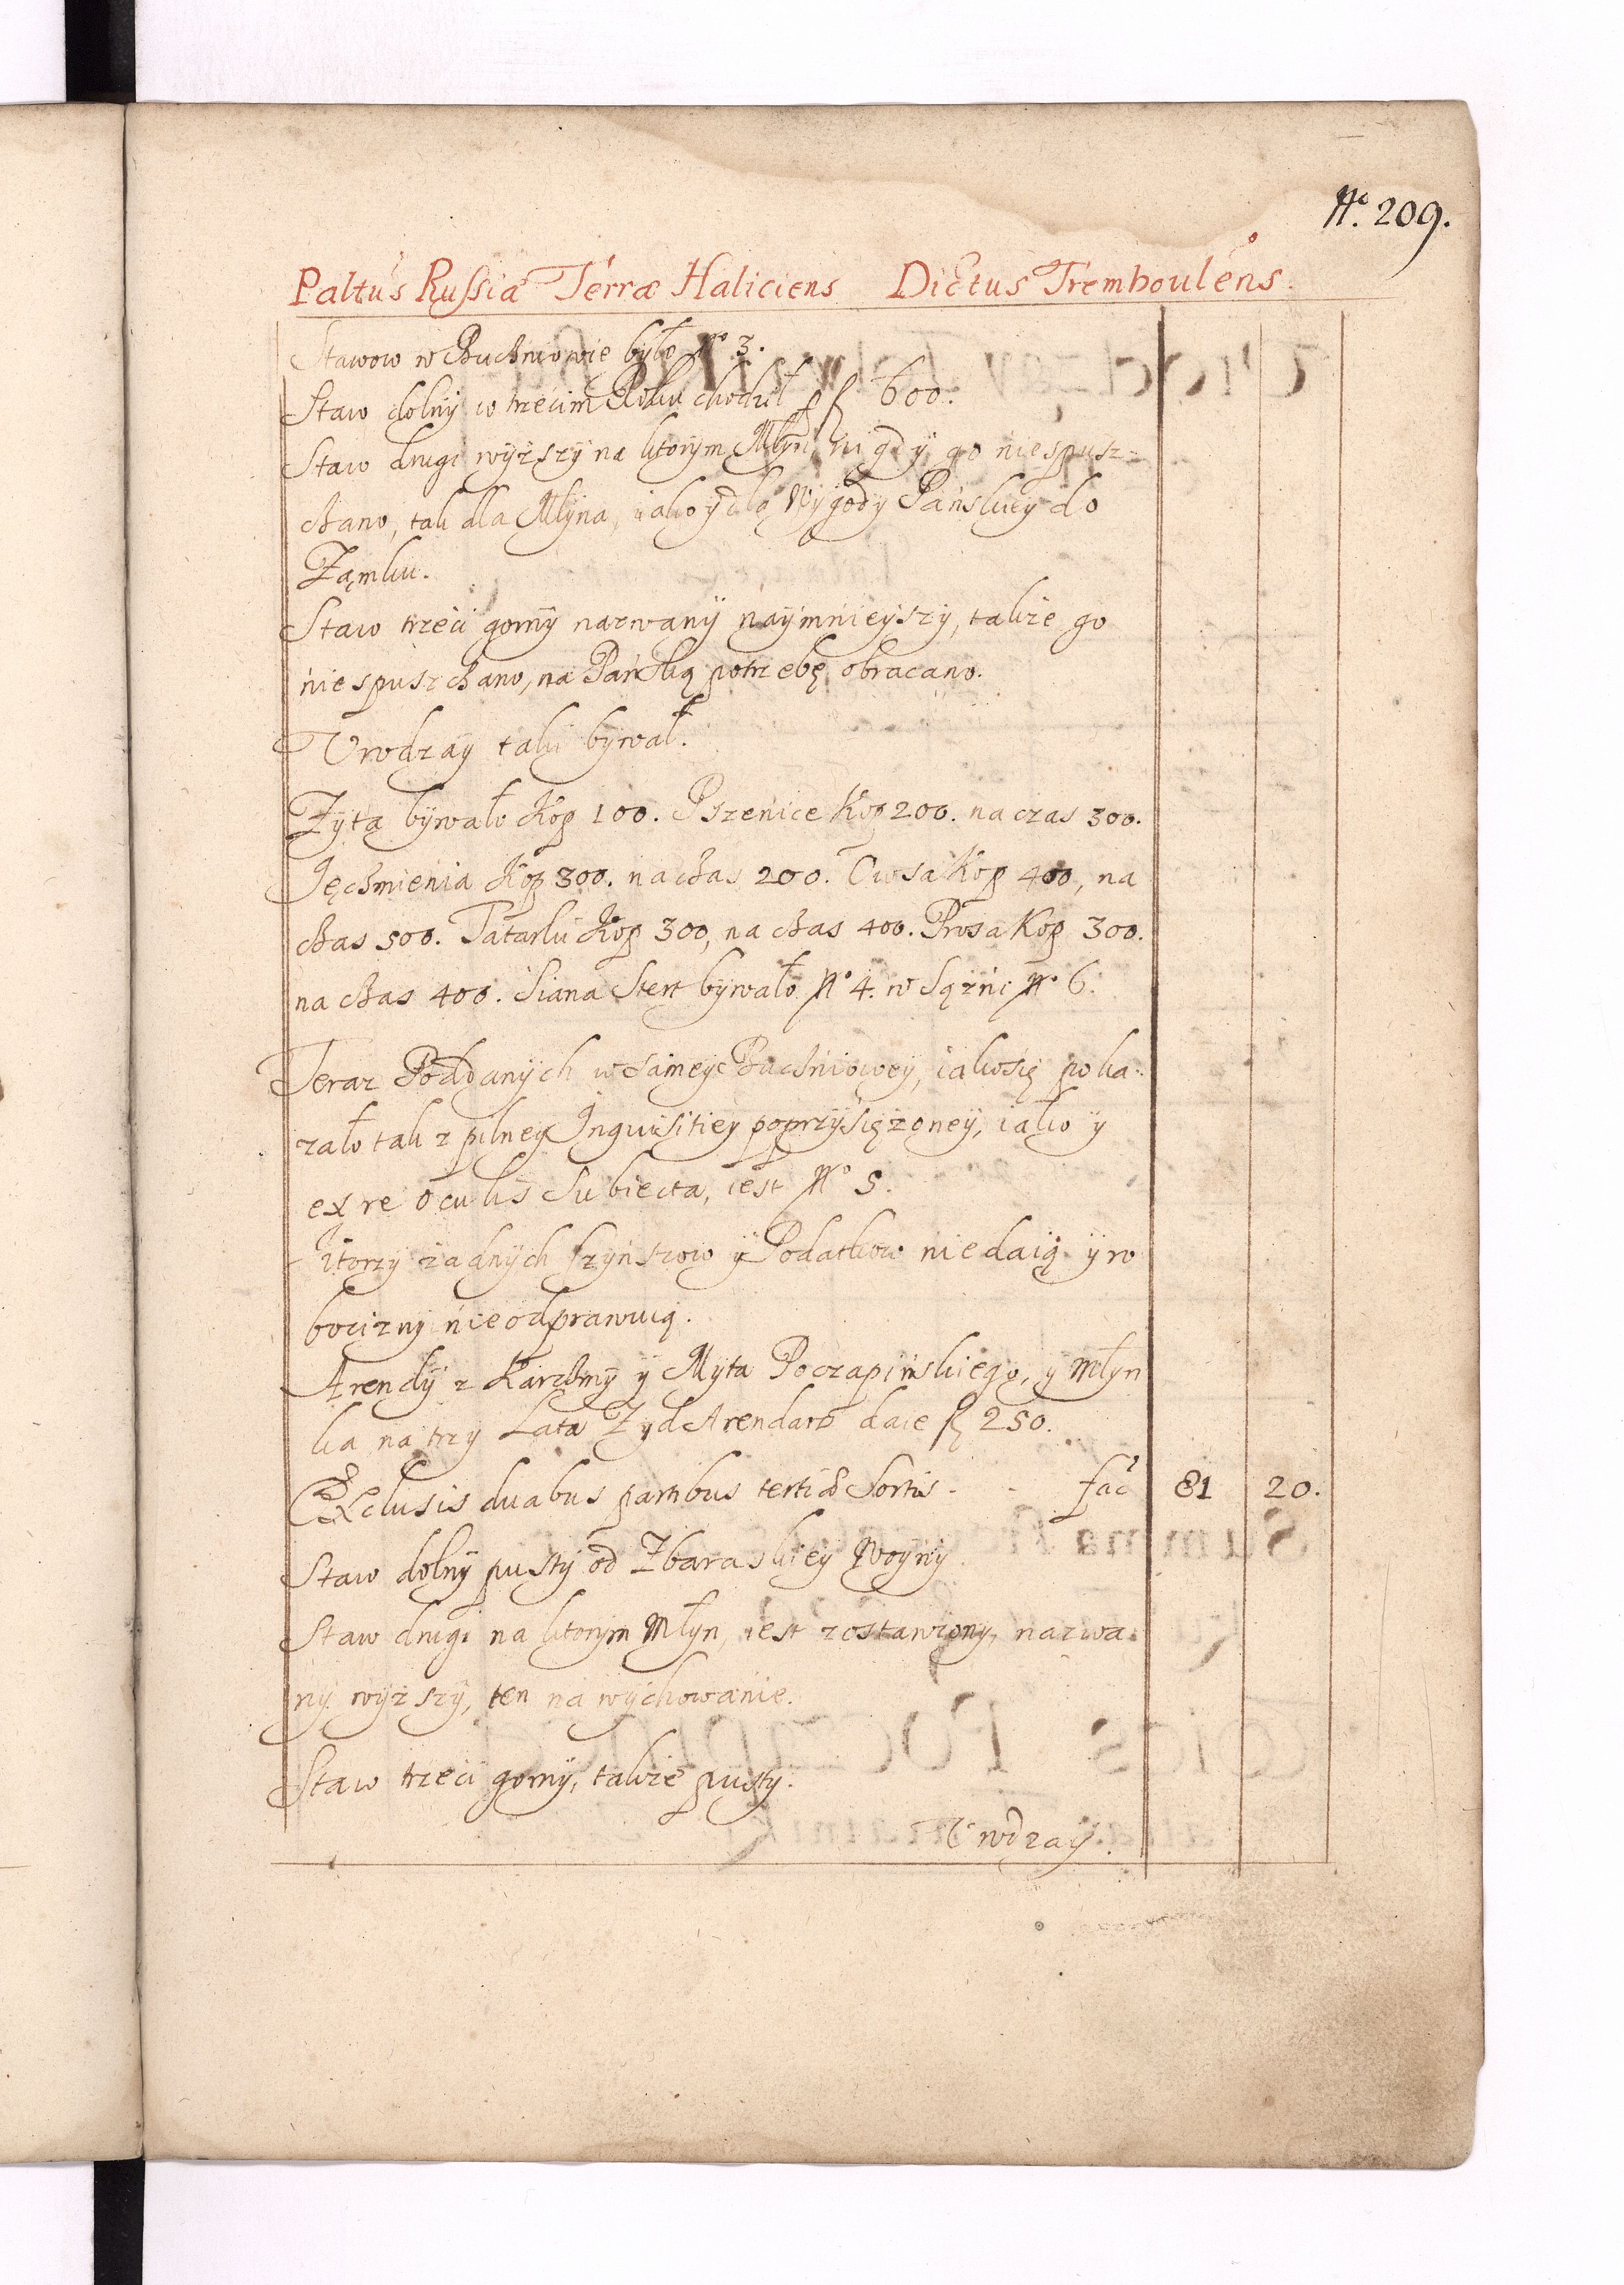 No. 209.
Paltus Russiæ Terræ Haliciens Dictus Tremboulens.
Stawow w Buchniowie było No 3.
Staw dolny w trzecim Roku chodził fl 600.
Staw drugi wyzszy na ktorym Młyn, nigdy go niespusz-
czano, tak dla Młyna, iako y dla Wygody Panskiey do
Zamku.
Staw trzeci gorny nazwany naymnieyszy, takze go
niespusczano, na Panską potrzebę obracano.
Urodzay taki bywał.
Zyta bywało Kop 100. Pszenice Kop 200. na czas 300.
Jęczmienia Kop 300. na czas 200. Owsa Kop 400, na
czas 500. Tatarki Kop 300, na czas 400. Prosa Kop 300.
na czas 400. Siana Stert bywało No 4. w Sązni No 6.
Teraz Poddanych w samey Buchniowey, iako się poka-
zało tak z pilney Inquisitiey poprzysiężoney, iako y
ex re oculis Subiecta, iest No 5.
Ktorzy zadnych Czynszow y Podatkow niedaią y ro
bocizny nieodprawuią.
Arendy z Karczmy y Myta Poczapinskiego, y Młyn
ka na trzy Lata Zyd Arendarz daie fl 250.
Exclusis duabus partibus tertiæ Sortis - - fac 81 20.
Staw dolny pusty od Zbaraskiey Woyny
Staw drugi na ktorym Młyn, iest zostawiony, nazwa-
ny wyzszy, ten na wychowanie.
Staw trzeci gorny, takze pusty.
Urodzay.